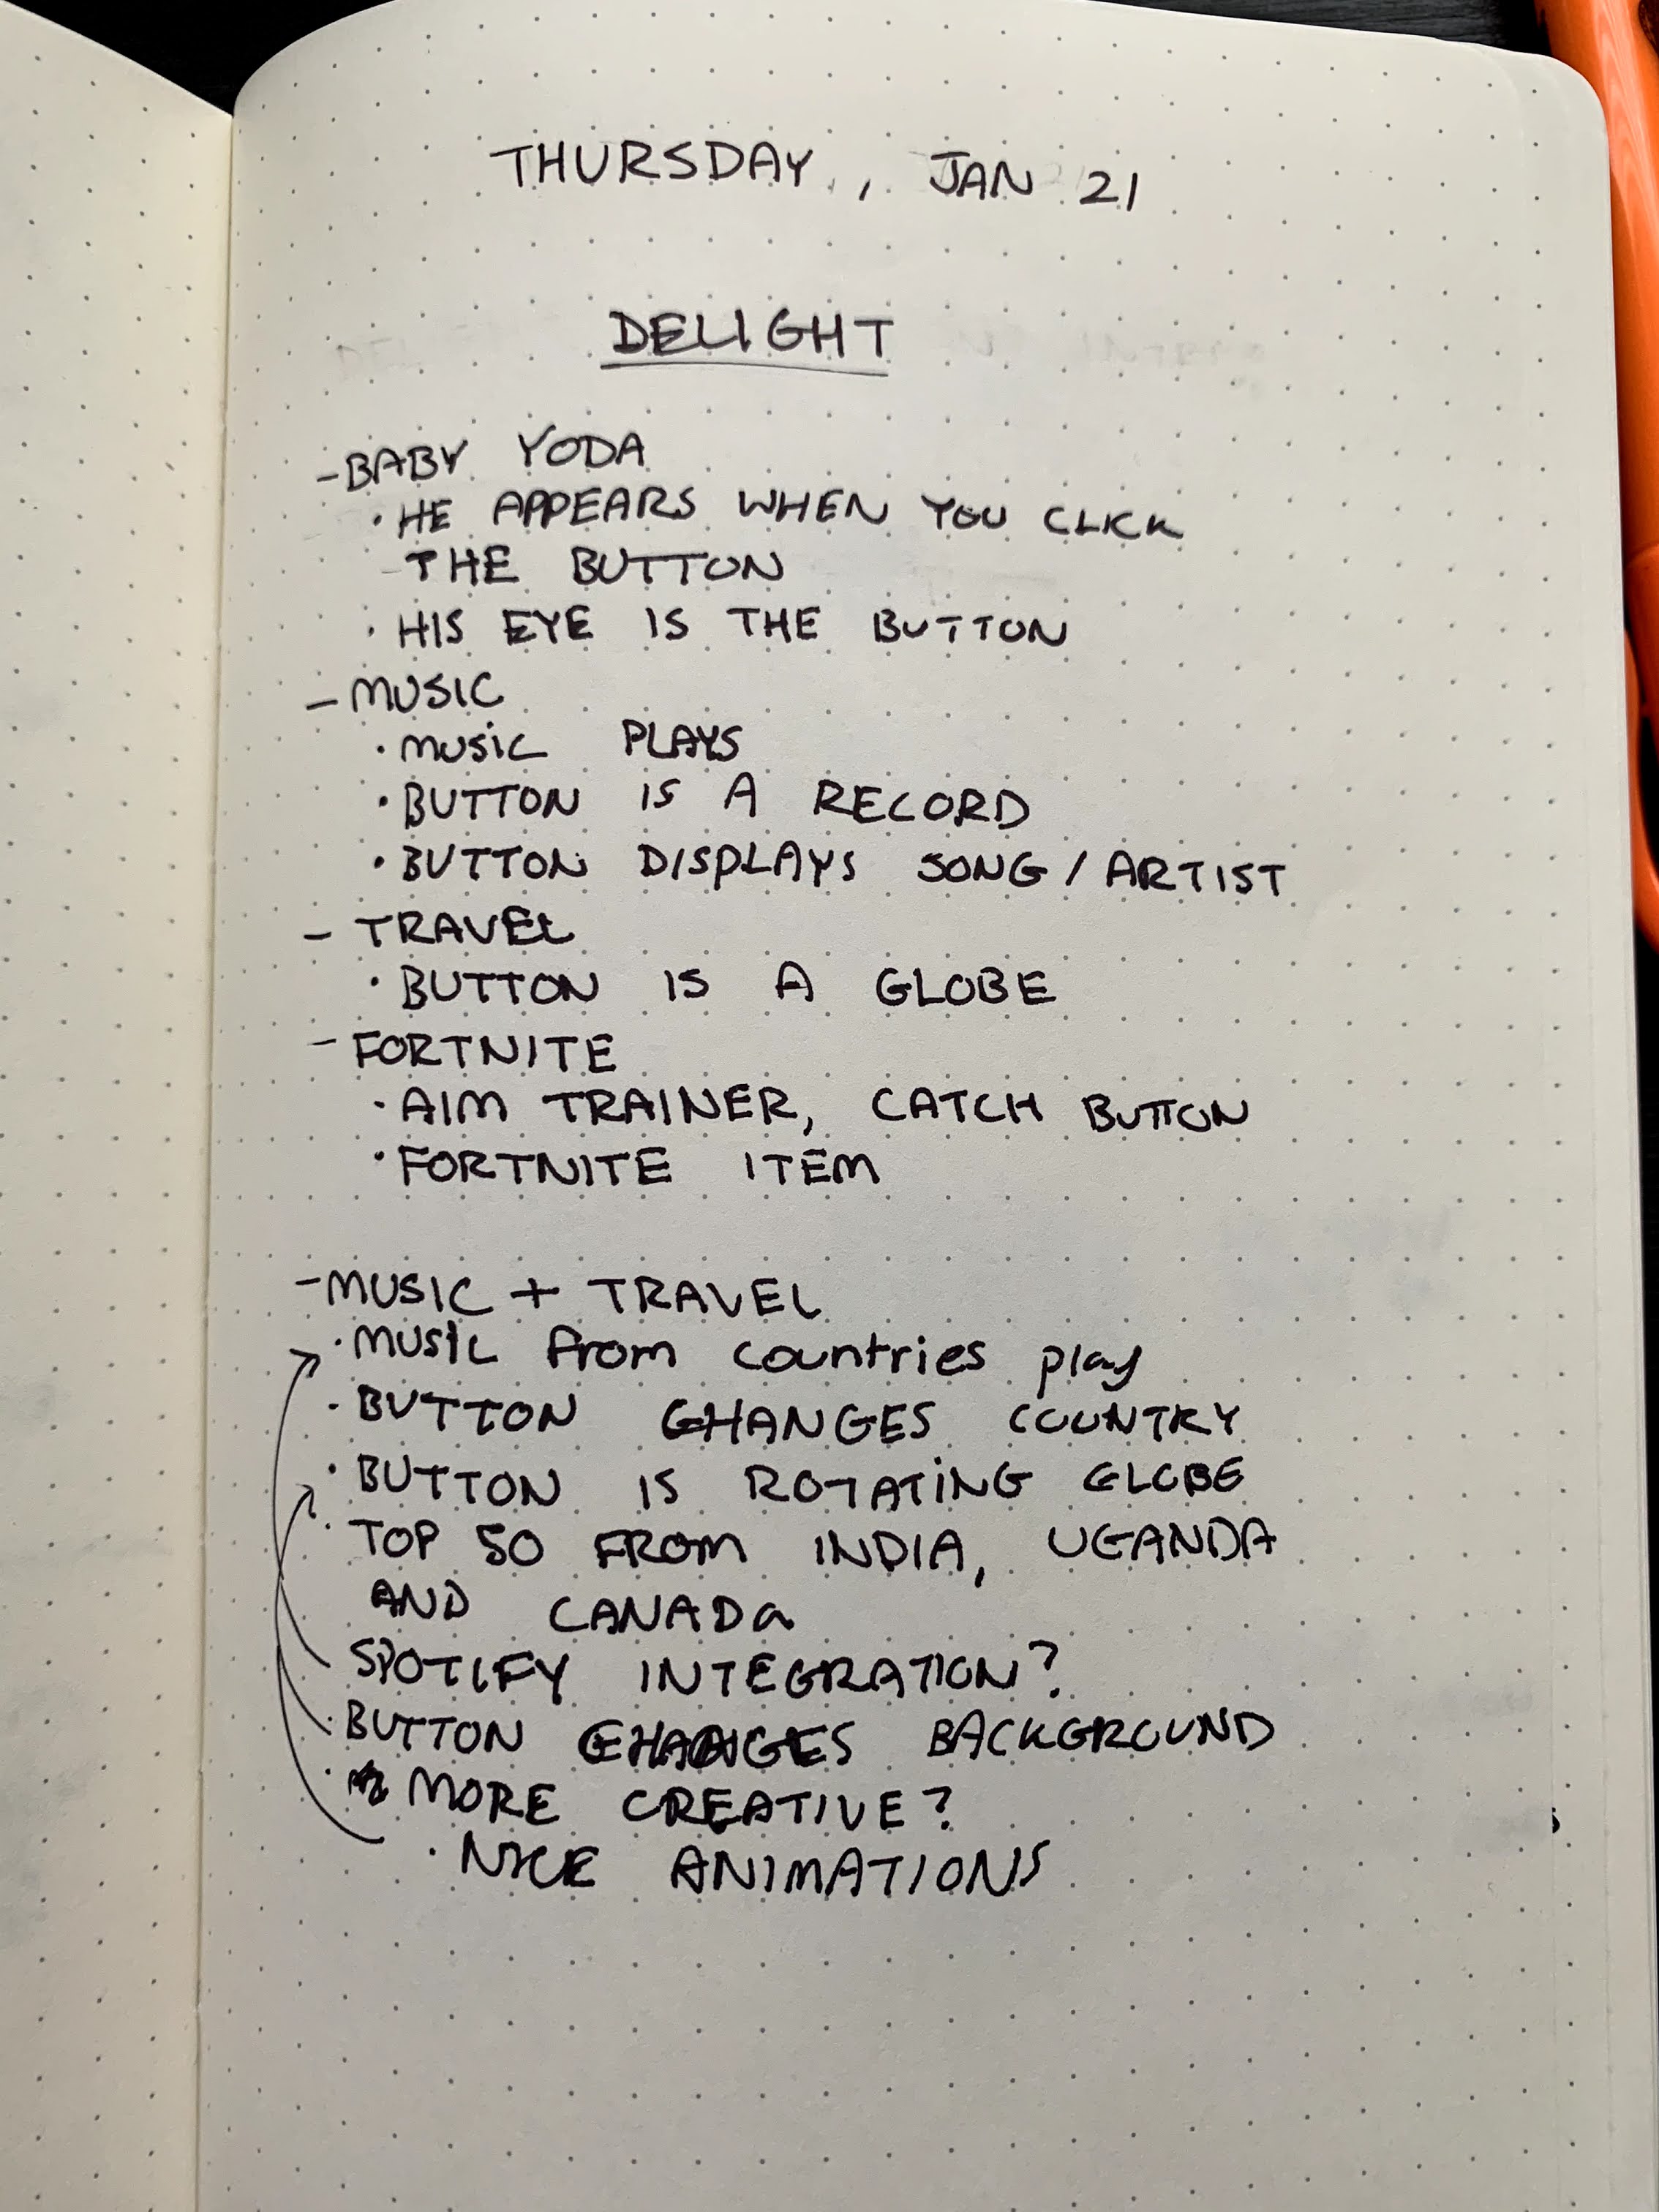 THURSDAY, JAN 21
DELIGHT
- BABY YODA
· HE APPEARS WHEN YOU CLICK
THE BUTTON
· HIS EYE IS THE BUTTON
- MUSIC
· MUSIC PLAYS
· BUTTON IS A RECORD
· BUTTON DISPLAYS SONG / ARTIST
- TRAVEL
· BUTTON IS A GLOBE
- FORTNITE
· AIM TRAINER, CATCH BUTTON
· FORTNITE ITEM
- MUSIC + TRAVEL
· MUSIC from countries play
· BUTTON CHANGES COUNTRY
· BUTTON IS ROTATING GLOBE
· TOP 50 FROM INDIA, UGANDA
AND CANADA
SPOTIFY INTEGRATION?
· BUTTON CHANGES BACKGROUND
· MORE CREATIVE?
· NICE ANIMATIONS